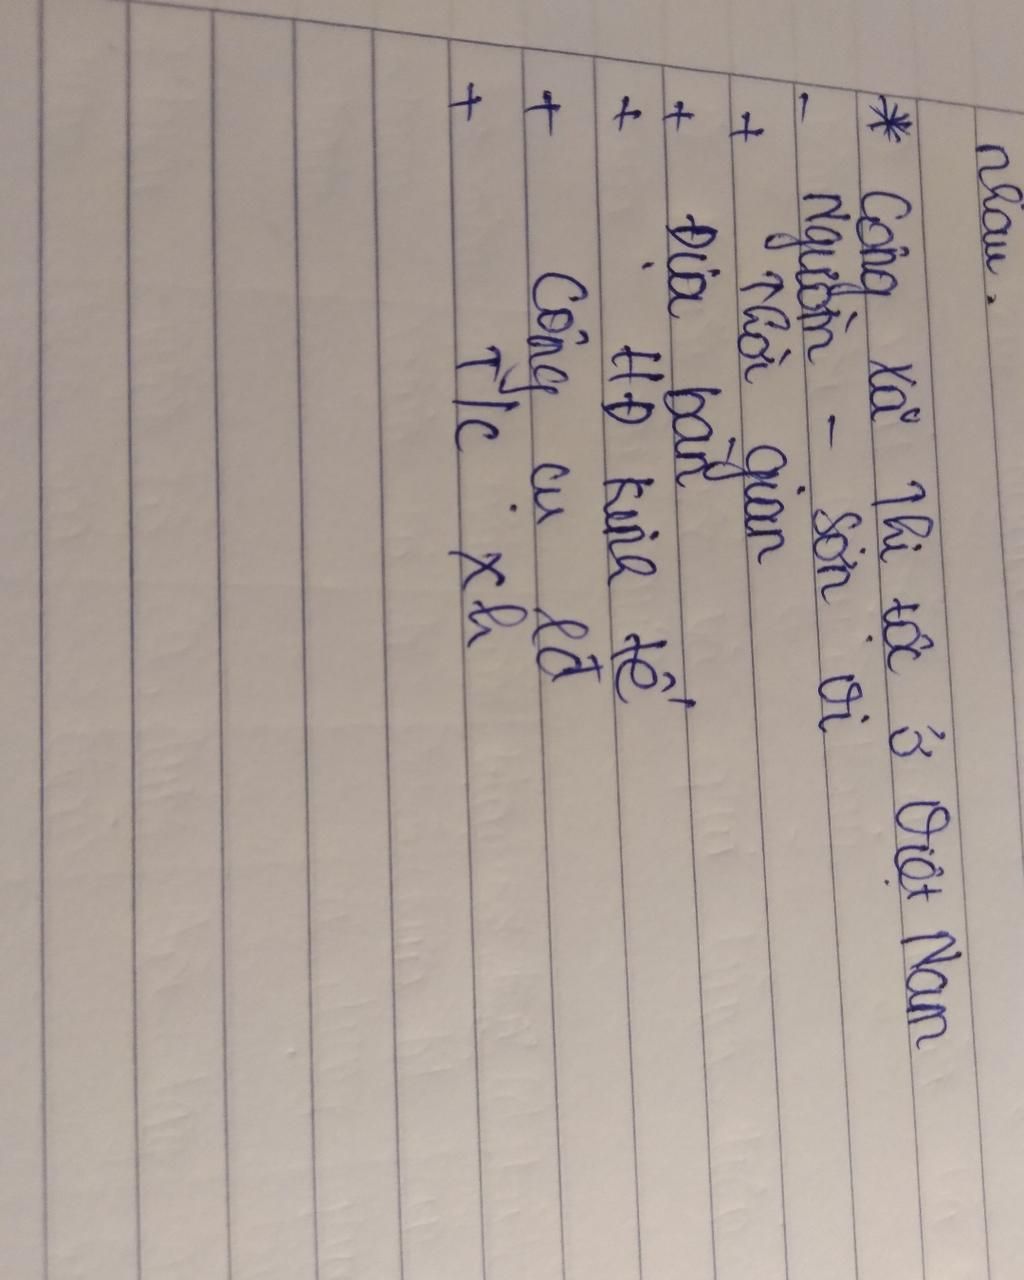 nhau.
* Công xã thị tộc ở Việt Nam
- Ngườm - Sơn Vi
+ Thời gian
+ Địa bàn
+ HĐ kinh tế
+ Công cụ lđ
+ T/c xh